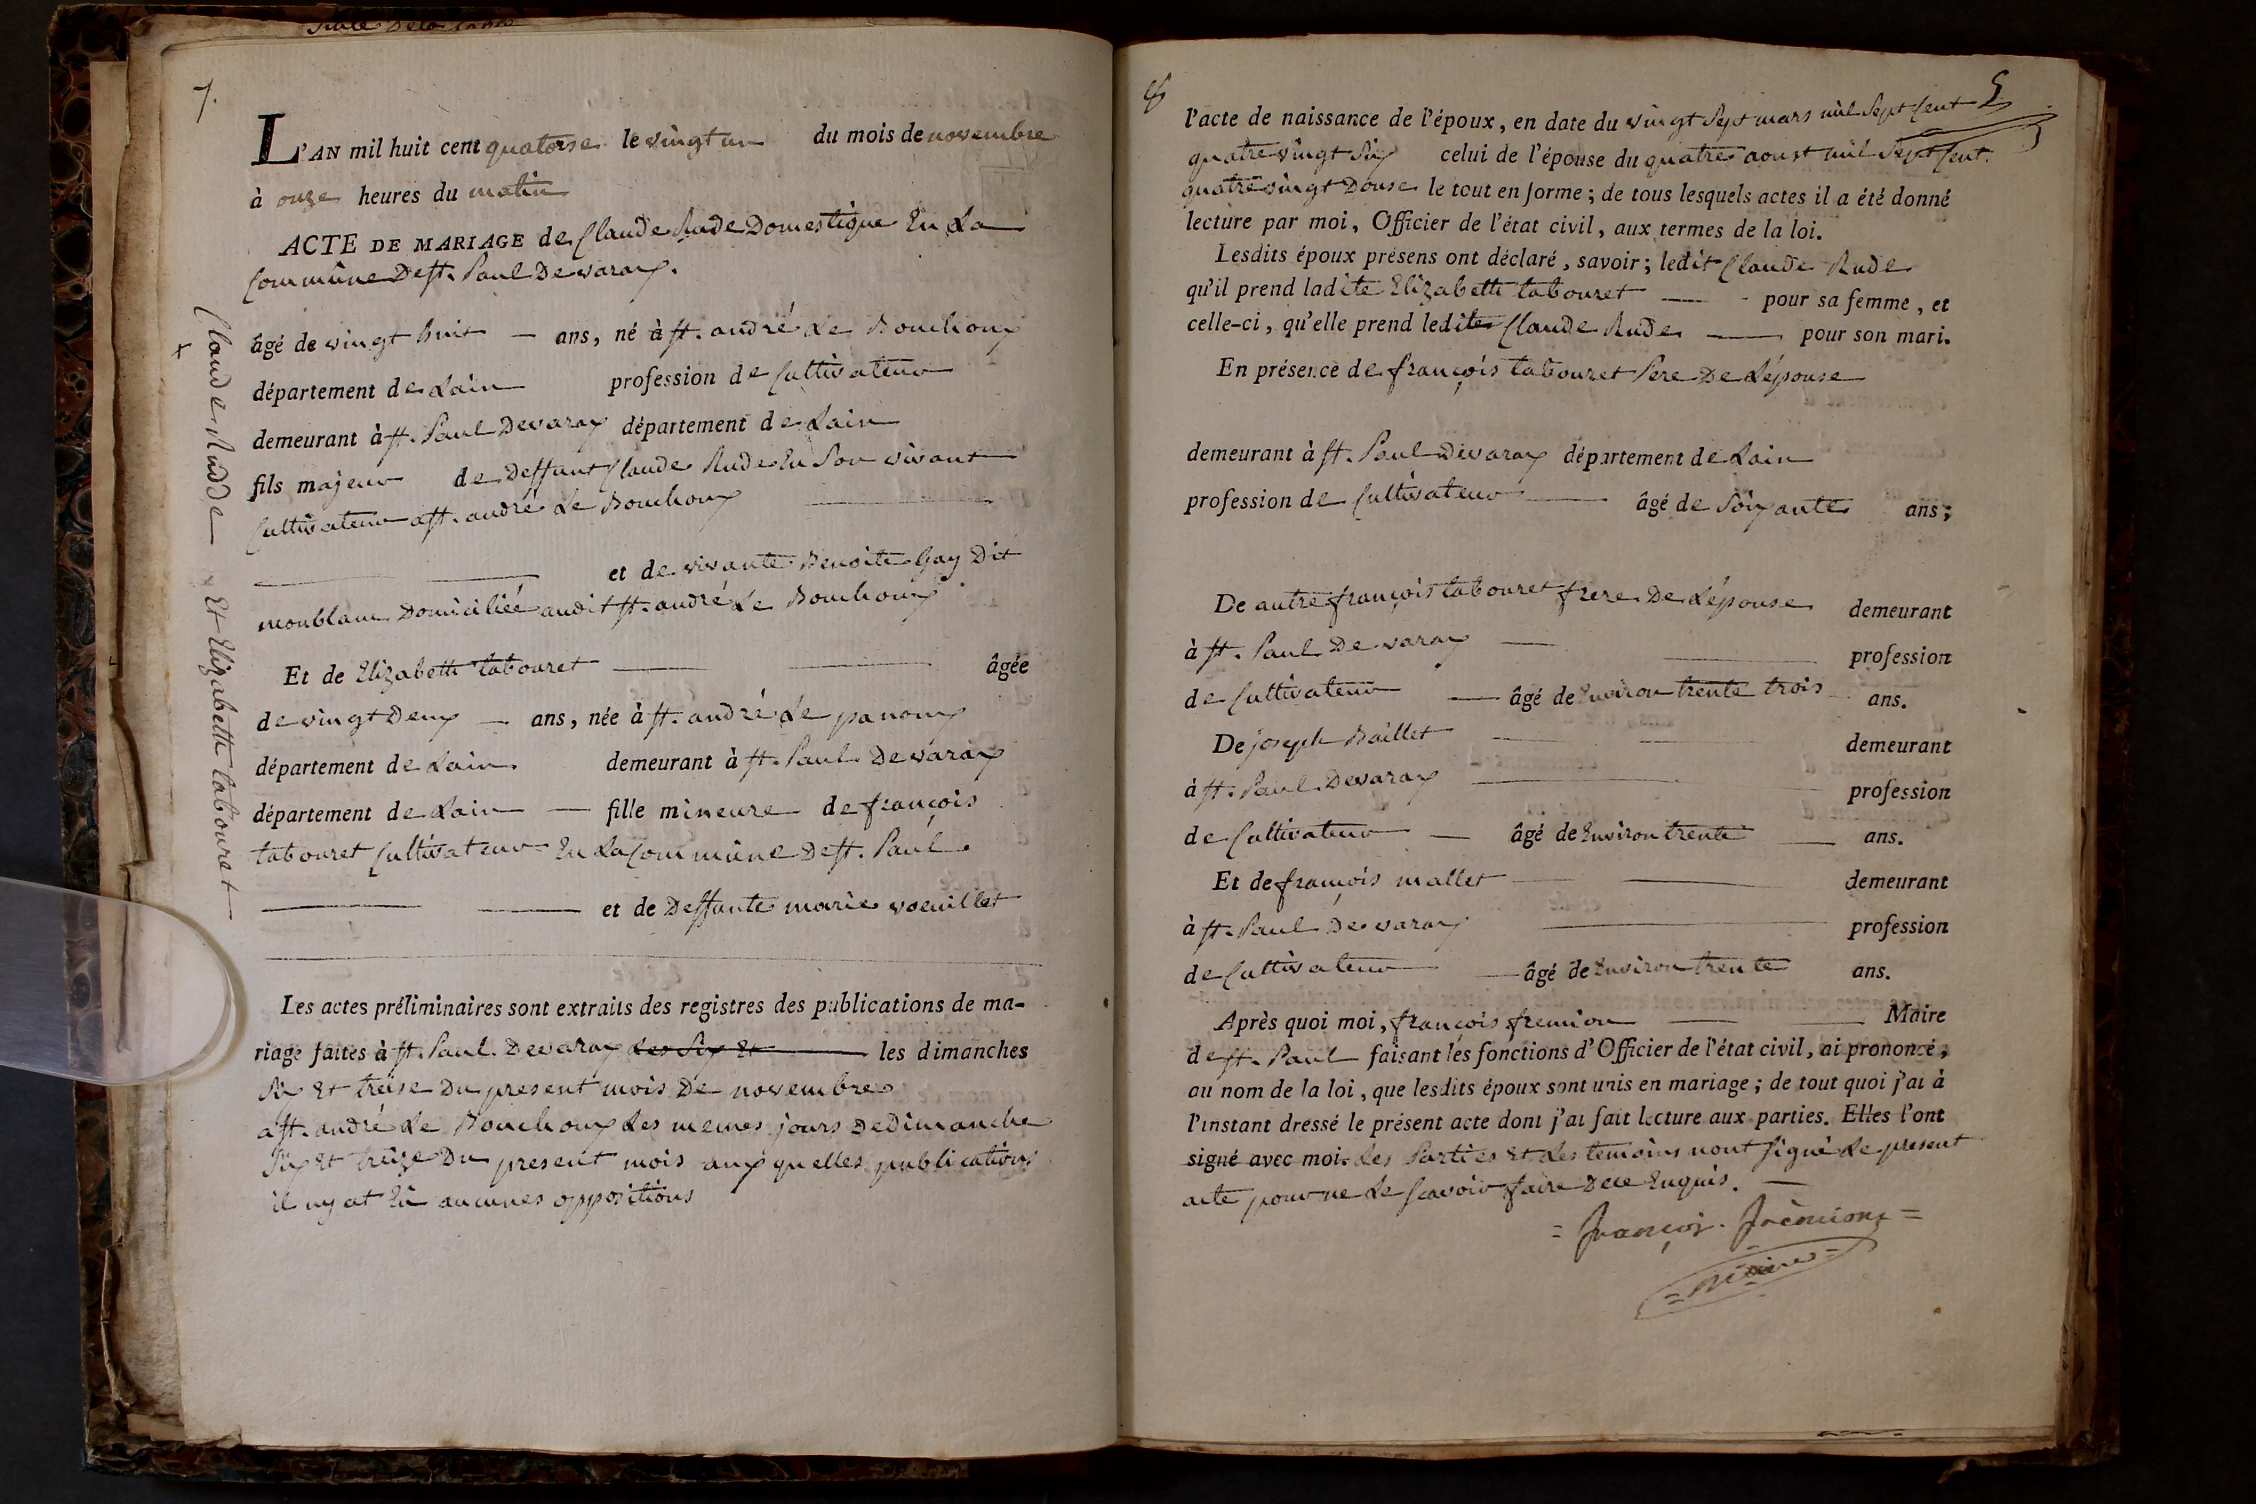 7.
L'AN mil huit cent quatorse le vingt un du mois de novembre
à onze heures du matin
ACTE DE MARIAGE de Claude Rude Domestique En La
Commune De St. Paul De varax.
Claude Rudde Et Elizabeth tabouret
âgé de vingt huit — ans, né à St. andré Le Bouchoux
département de Lain profession de Cultivateur
demeurant à St. Paul Devarax département de Lain
fils majeur de Deffunt Claude Rude En Son vivant
Cultivateur a St. andré Le Bouchoux
et de vivante Benoite Gay Dit
monblanc Domiciliée audit St. andré Le Bouchoux
Et de Elizabeth tabouret — âgée
de vingt Deux — ans, née à St. andré Le panoux
département de Lain. demeurant à St. Paul De varax
département de Lain — fille mineure de françois
tabouret Cultivateur En La Commune De St. Paul
et de Deffunte marie voeuillet
Les actes préliminaires sont extraits des registres des publications de ma-
riage faites à St. Paul Devarax les Six Et les dimanches
Six Et treise Du present mois De novembre
a St. andré Le Bouchoux Les memes jours De Dimanche
Six Et treize Du present mois aux quelles publications
il ny at Eü aucunes oppositions
8
5
l'acte de naissance de l'époux, en date du vingt Sept mars mil Sept Cent
quatre vingt Six celui de l'épouse du quatre aoust mil Sept Cent
quatre vingt Douse le tout en forme; de tous lesquels actes il a été donné
lecture par moi, Officier de l'état civil, aux termes de la loi.
Lesdits époux présens ont déclaré, savoir; ledit Claude Rude
qu'il prend ladite Elizabeth tabouret — pour sa femme, et
celle-ci, qu'elle prend ledit Claude Rude — pour son mari.
En présence de françois tabouret Pere De Lépouse
demeurant à St. Paul Devarax département de Lain
profession de Cultivateur — âgé de Soixante ans;
De autre françois tabouret frere De Lépouse demeurant
à St. Paul De varax — profession
de Cultivateur — âgé de Environ trente trois ans.
De joseph Baillet demeurant
à St. Paul Devarax profession
de Cultivateur — âgé de Environ trente — ans.
Et de françois mallet — demeurant
à St. Paul De varax profession
de Cultivateur — âgé de Environ trente ans.
Après quoi moi, françois fremion — Maire
de St. Paul faisant les fonctions d'Officier de l'état civil, ai prononcé,
au nom de la loi, que lesdits époux sont unis en mariage; de tout quoi j'ai à
l'instant dressé le présent acte dont j'ai fait lecture aux parties. Elles l'ont
signé avec moi. Les Parties Et Les temoins nont Signé Le present
acte pour ne Le Scavoir faire De ce Enquis. —
= françois. frèmion =
= maire =